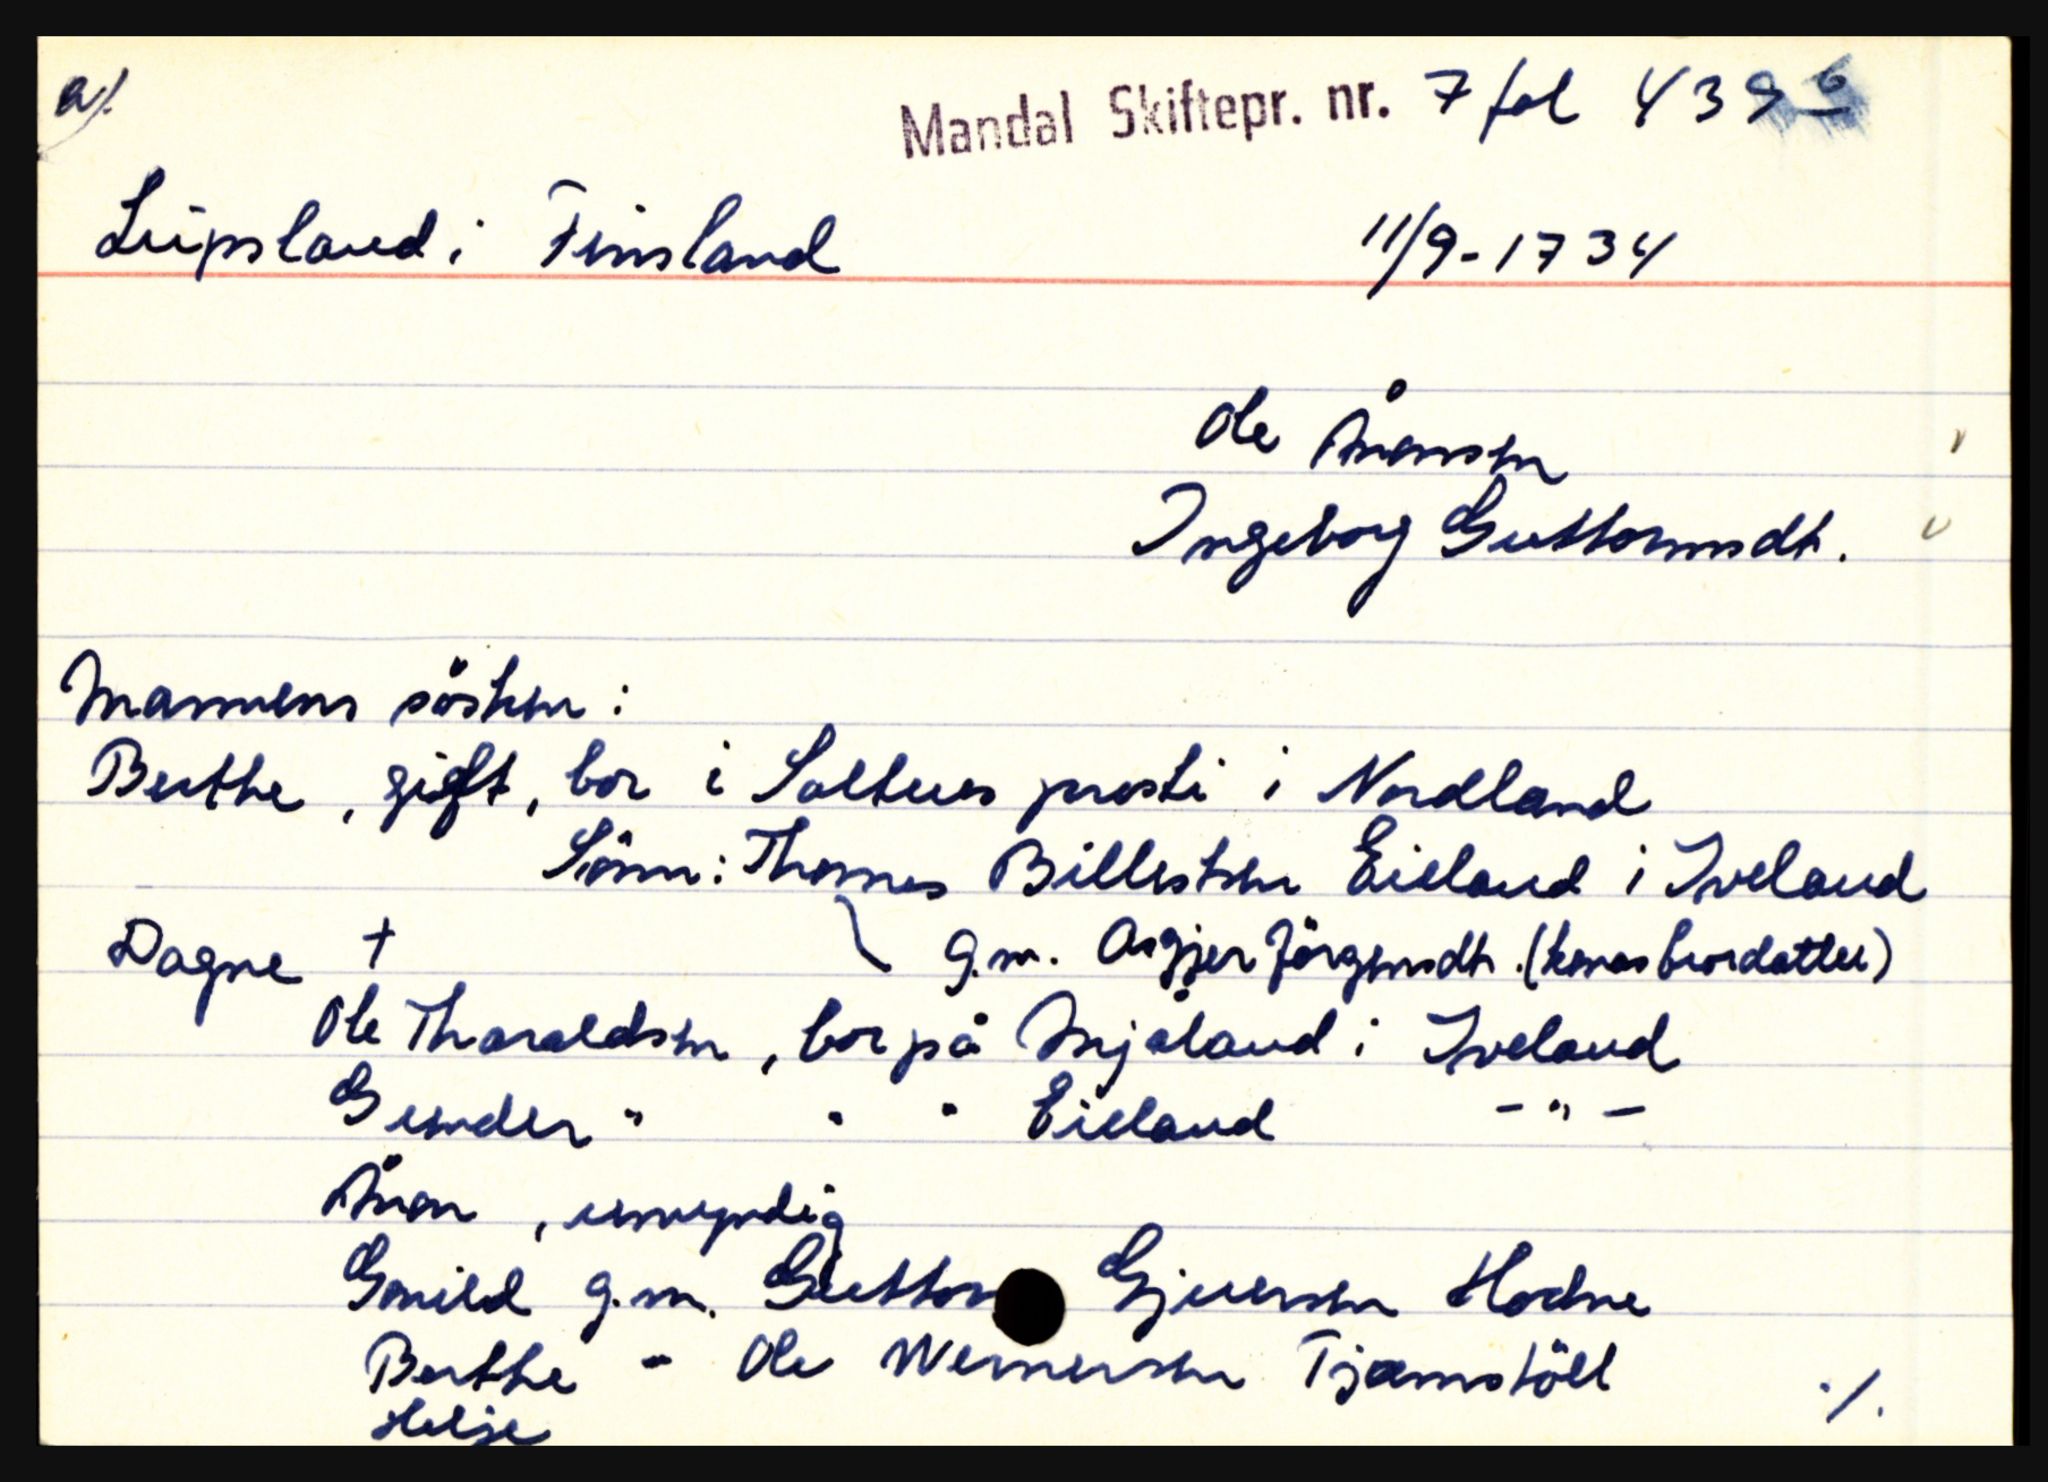 a/.
Mandal Skiftepr. nr. 7 fol 439 b
Lüpsland i Finsland 11/9-1734
Ole Ånonsen
Ingeborg Guttormsdt.
Mannens søsken:
Berthe, gift, bor i Saltens prosti i Nordland
Sønn: Thomes Billestsen Eieland i Iveland
Dagne † g.m. Asgjer Jörgensdt. (konas brordatter)
Ole Tharaldsen, bor på Mjåland i Iveland
Gunder " " " Eieland - " -
Ånon, umyndig
Gonild g.m. Guttor Gjuersen Hodne
Berthe - Ole Wernersen Tjamstöll
Helje
./.